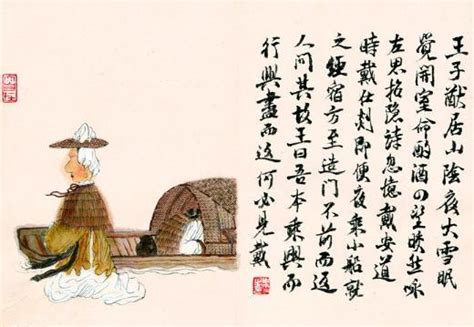 王子猷居山陰夜大雪眠
覺開室命酌酒四望皎然
左思招隱詩忽憶戴安道
時戴在剡即便夜乘小船就
之經宿方至造門不前而返
人問其故王曰吾本乘興而
行興盡而返何必見戴